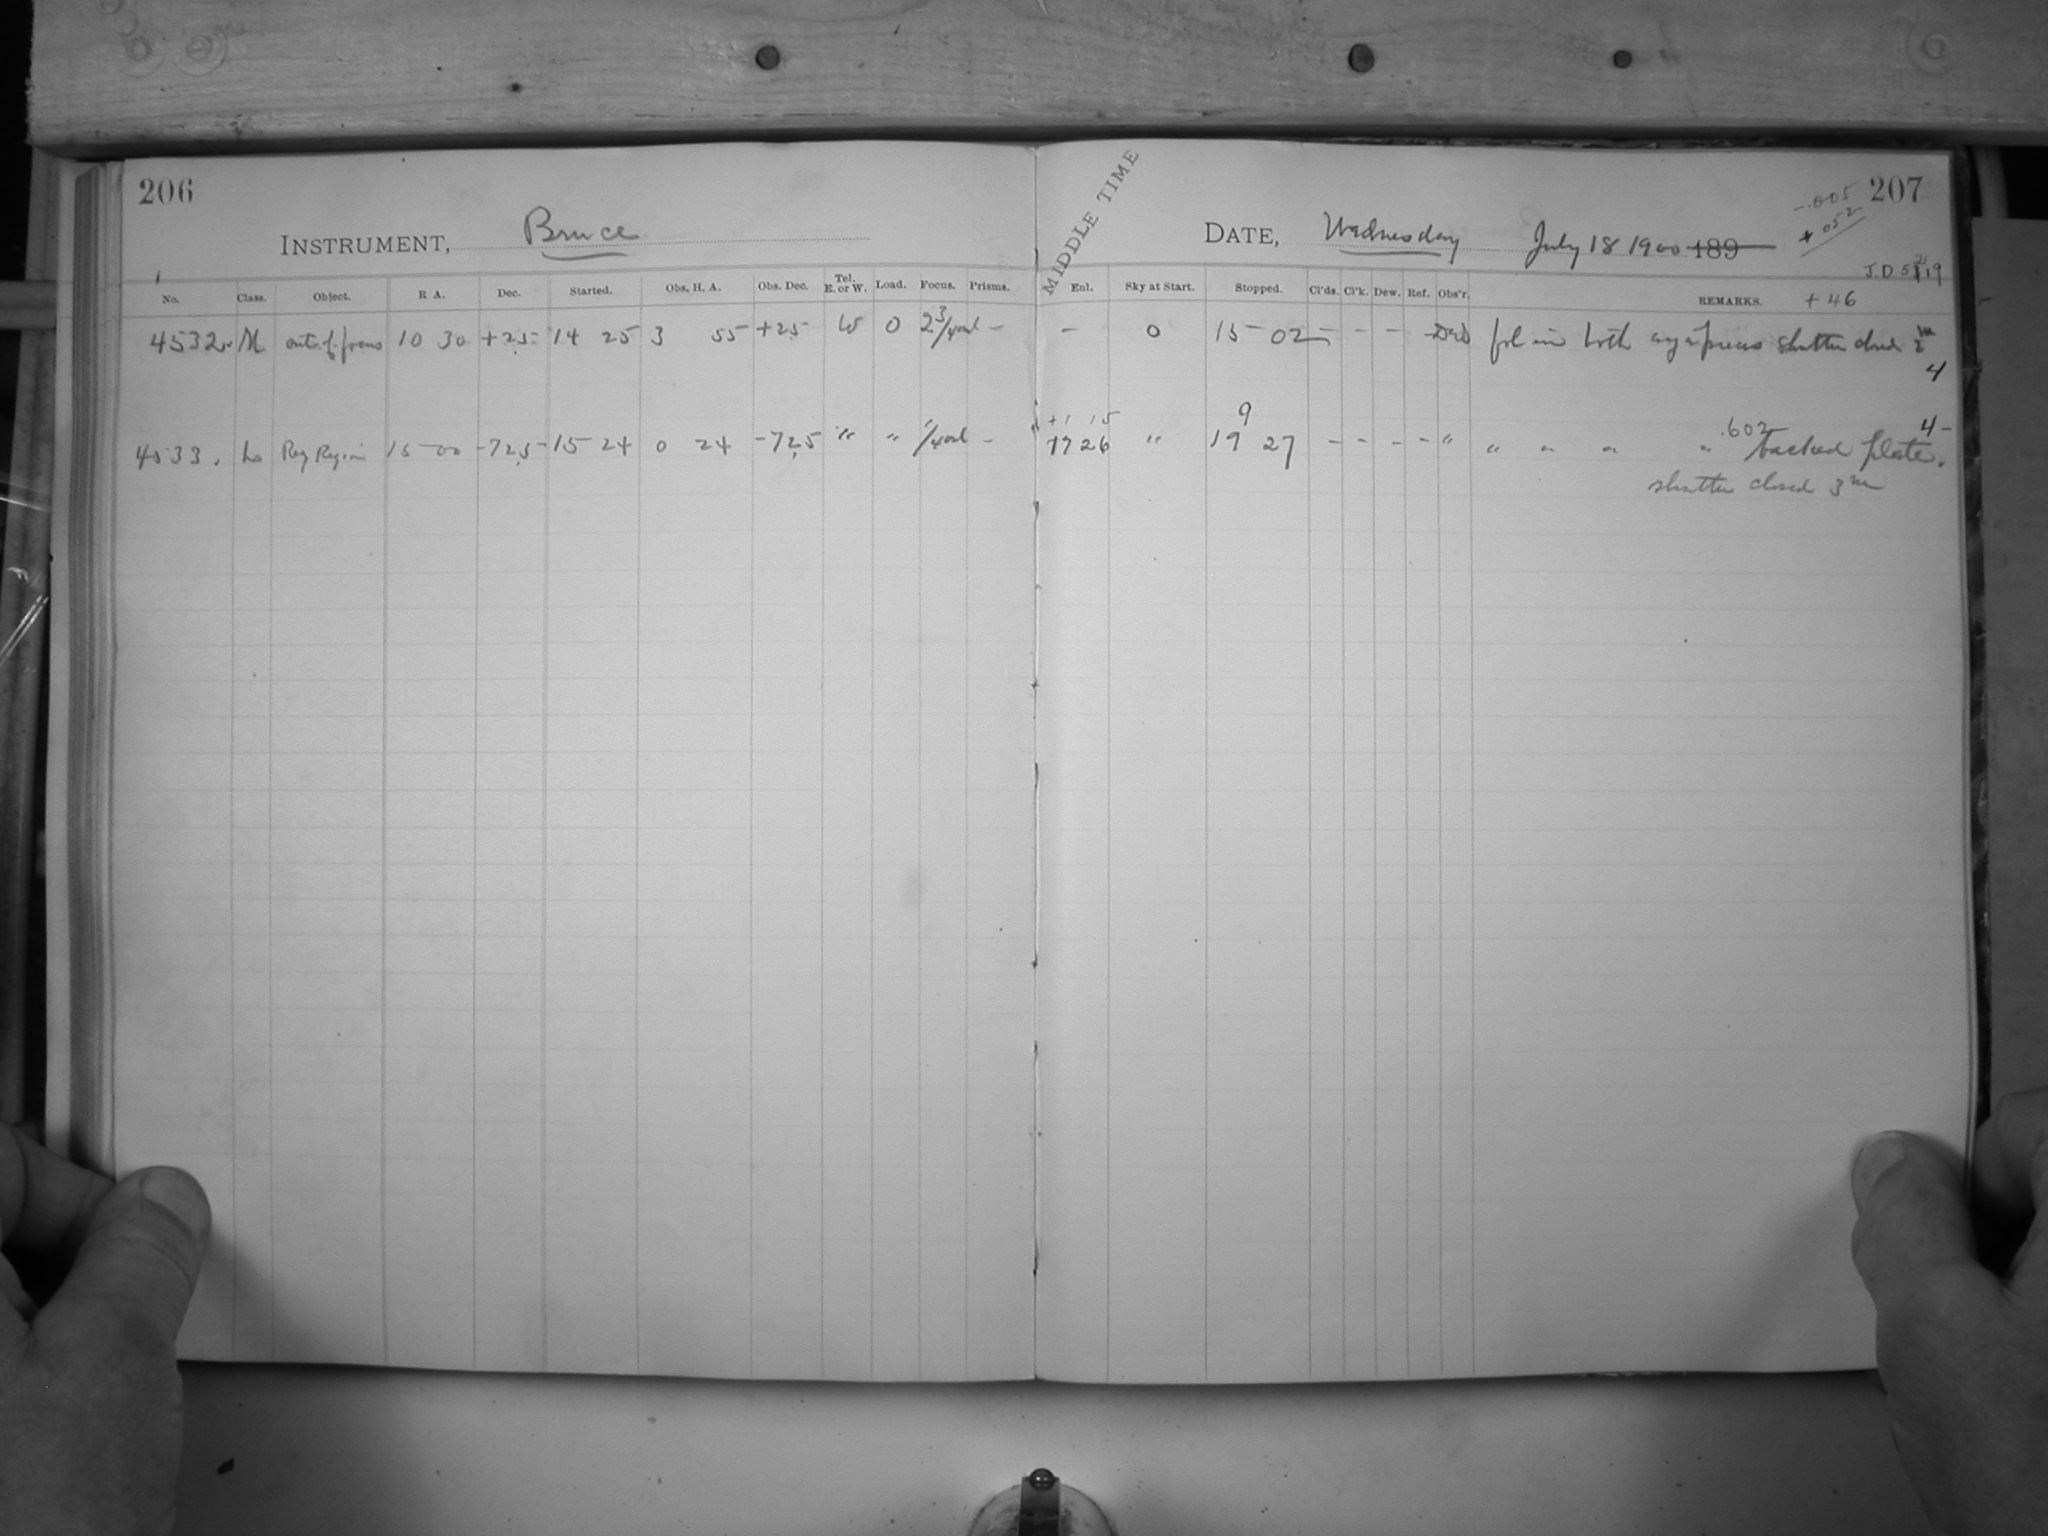 206
INSTRUMENT, Bruce
No. Class. Object. R A. Dec. Started. Obs. H. A. Obs. Dec. Tel. E. or W. Load. Focus. Prisms.
4532 M out of focus 10 30 +25 14 25 3 55 +25 W 0 2 3/4 –
4533. L Reg Region 15 00 -72.5 15 24 0 24 -72.5 " " –
MIDDLE TIME
207
-.005
+ 052
DATE, Wednesday July 18 1900 189
J.D. 5219
Enl. Sky at Start. Stopped. Cl'ds. Cl'k. Dew. Ref. Obs'r. REMARKS. + 46
– 0 15 02 – – – fol in both shutter closed 2 m
4
+1 15 9 .602 4 –
17 26 " 19 27 – – – – " " " " " backed plate.
shutter closed 3 m